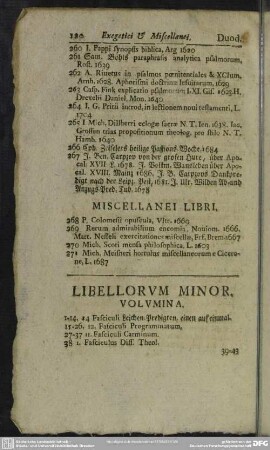 120 Exegetici & Miscellanei. Duod.
260 I. Pappi synopsis biblica, Arg 1620
261 Sam. Bohls paraphrasis analytica psalmorum,
Rost. 1639
262 A. Riverus in psalmos poenitentiales & XCIum,
Arnh. 1628. Aphorismi doctrinæ Jesuitarum, 1629
263 Casp. Fink explicatio psalmorum LXI. Gis. 1625. H.
Drexelii Daniel, Mon. 1640
264 I. G. Pritii introd. in lectionem novi testamenti, L.
1704
265 I Mich. Dillherri eclogæ sacræ N. T. Ien. 1638. Iac.
Grossius trias propositionum theolog. pro stilo N. T.
Hamb. 1640
266 Cph. Zeiselers heilige Passions Wocke. 1684
267 J. Ben. Carpzov von der grosen Hure, über Apoc.
cal. XVII P. 1678. J.
cal. XVIII. Wainß 1686. J. B. Carpzovs Danckpre-
digt nach der Leipz. Pest, 1681. J. Ulr. Wilden Ab- und
Anzugs-Pred. Tub. 1678
MISCELLANEI LIBRI.
268 P. Colomesii opuscula, Vltr. 1669
269 Rerum admirabilium encomia, Noviom. 1666.
Matt. Neskeli exercitationes miscellæ, Brf. Brem 1667
270 Mich. Scoti mensa philosophica, L. 1603
271 Mich. Meisneri hortulus miscellaneorum e Cicero-
ne, L. 1687
LIBELLORVM MINOR.
VOLVMINA.
1-14. 14 Fasciculi Leichen-Predigten, einen auf einmal.
15-26. 12. Fasciculi Programmatum.
27-37 11. Fasciculi Carminum.
38 1. Fasciculus Diss. Theol.
39-43